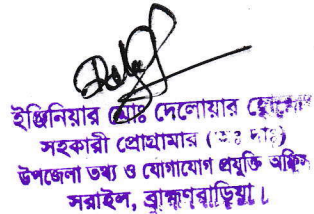 ইঞ্জিনিয়ার মোঃ দেলোয়ার হোসেন
সহকারী প্রোগ্রামার (অঃ দাঃ)
উপজেলা তথ্য ও যোগাযোগ প্রযুক্তি অফিস
সরাইল, ব্রাহ্মণবাড়িয়া।